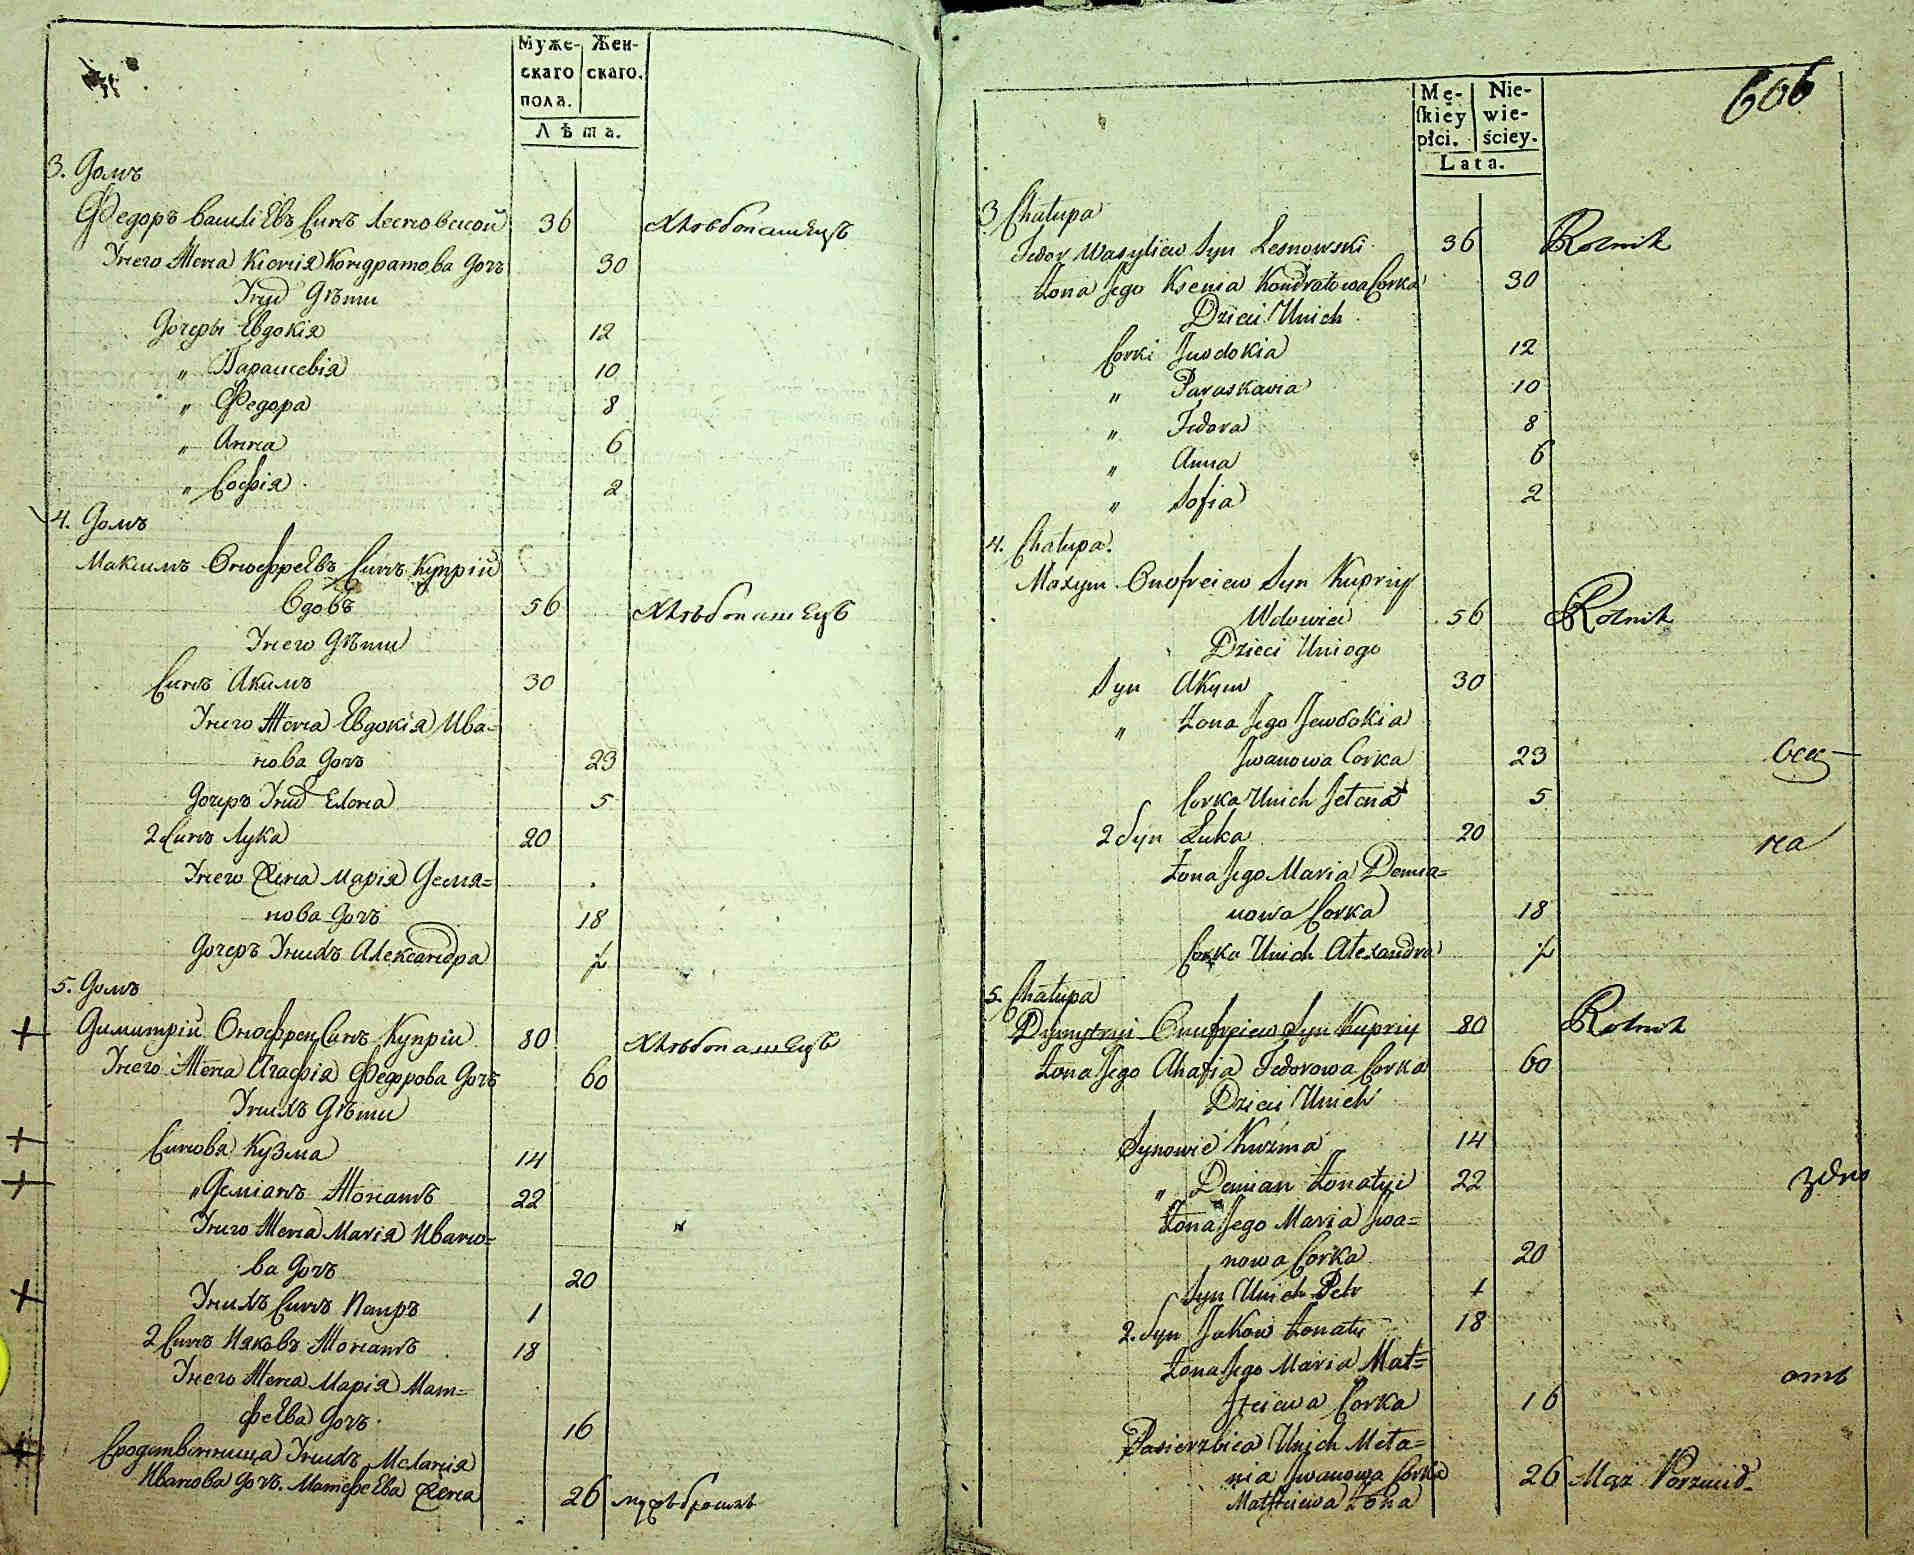 Муже-
скаго
пола.
Жен-
скаго.
Лѣта.
3. Домъ
Федоръ Василіевъ Синъ Лесновской 36 Хлѣбопашецъ
Унего Жена Ксенія Кондратова Дочъ 30
Уних Дѣти
Дочеры Евдокія 12
„ Параскевія 10
„ Федора 8
„ Анна 6
„ Софія 2
4. Домъ
Максимъ Онофреевъ Синъ Куприй
Вдовъ 56 Хлѣбопашецъ
Унего Дѣти
Синъ Акимъ 30
Унего Жена Евдокія Ива=
нова Дочъ 23
Дочеръ Уних Елена 5
2 Синъ Лука 20
Унего Жена Марія Демя=
нова Дочъ 18
Дочеръ Унихъ Александра
5. Домъ
Димитрій Онофреи Синъ Куприи 80 Хлѣбопашецъ
Унего Жена Агафія Федорова Дочъ 60
Унихъ Дѣти
Синова Кузма 14
„ Деміанъ Жонатъ 22
Унего Жена Марія Ивано=
ва Дочъ 20
Унихъ Синъ Петръ 1
2 Синъ Ияковъ Жонатъ 18
Унего Жена Марія Мат=
феева Дочъ 16
Сродственница Унихъ Меланія
Иванова Дочъ. Матфеева Жена 26
606
Mę-
ſkiéy
płci.
Nie-
wie-
ściey.
Lata.
3 Chałupa
Fedor Wasyliew Syn Lesnowski 36 Rolnik
Żona Jego Ksenia Kondratowa Corka 30
Dzieci Unich
Corki Jewdokia 12
„ Paraskawia 10
„ Fedora 8
„ Anna 6
„ Sofia 2
4. Chałupa.
Maxym Onofreiew Syn Kupriy
Wdowiec 56 Rolnik
Dzieci Uniego
Syn Akym 30
„ Żona Jego Jewdokia
Jwanowa Corka 23
Corka Unich Jelena 5
2 Syn Łuka 20
на
Żona Jego Maria Demia=
nowa Corka 18
Corka Unich Alexandra
5. Chałupa
Dymytryi Onufreiew Syn Kupriy 80 Rolnik
Żona Jego Ahafia Fedorowa Corka 60
Dzieci Unich
Synowie Kuzma 14
„ Demian Żonatyi 22
Żona Jego Maria Jwa=
nowa Corka 20
Syn Unich Petr 1
2. Syn Jakow Żonaty 18
Żona Jego Maria Mat=
fteiewa Corka 16
отъ
Pasierzbica Unich Mela=
nia Jwanowa Corka 26 Mąż
Matfteiewa Żona